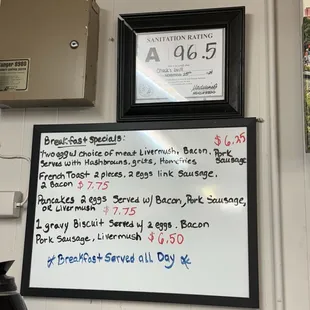 SANITATION RATING
A 96.5
Breakfast Specials: $6.25
Two egg w/ choice of meat Livermush, Bacon, Pork Sausage
Serves with Hashbrowns, grits, Homefries
French Toast 2 pieces, 2 eggs link Sausage,
2 Bacon $7.75
Pancakes 2 eggs Served w/ Bacon, Pork Sausage,
or Livermush $7.75
1 gravy Biscuit Served w/ 2 eggs. Bacon
Pork Sausage, Livermush $6.50
Breakfast Served all Day